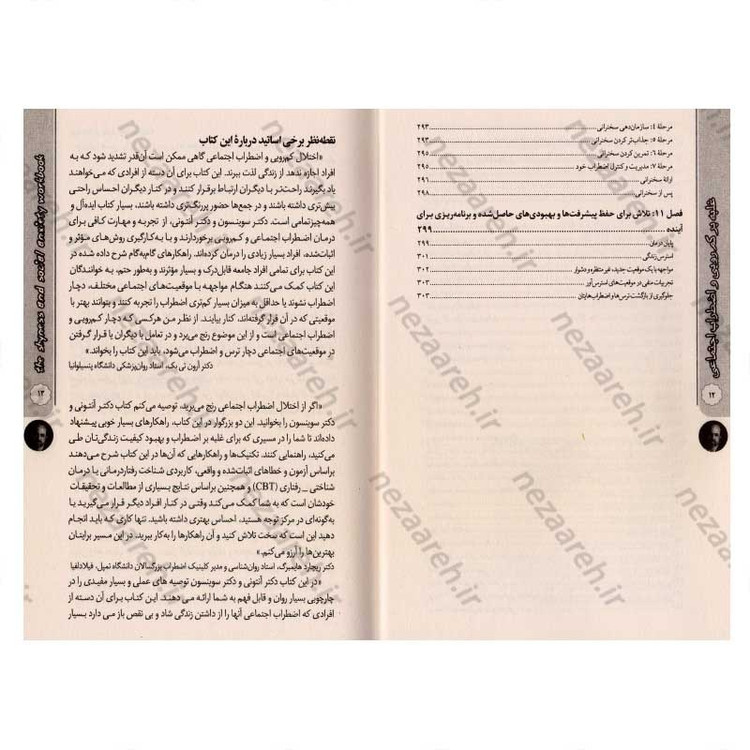 مرحلهٔ ۴: سازمان‌دهی سخنرانی ........ ۲۹۳
مرحلهٔ ۵: جذاب‌تر کردن سخنرانی ........ ۲۹۳
مرحلهٔ ۶: تمرین کردن سخنرانی ........ ۲۹۵
مرحلهٔ ۷: مدیریت و کنترل اضطراب خود ........ ۲۹۵
ارائهٔ سخنرانی ........ ۲۹۶
پس از سخنرانی ........ ۲۹۸
فصل ۱۱: تلاش برای حفظ پیشرفت‌ها و بهبودی‌های حاصل‌شده و برنامه‌ریزی برای
آینده ........ ۲۹۹
پایان درمان ........ ۲۹۹
استرس زندگی ........ ۳۰۱
مواجهه با یک موقعیت جدید، غیرمنتظره و دشوار ........ ۳۰۲
تجربیات منفی در موقعیت‌های استرس‌آور ........ ۳۰۳
جلوگیری از بازگشت ترس‌ها و اضطراب‌هایتان ........ ۳۰۳
غلبه بر کم‌رویی و اضطراب اجتماعی
۱۲
نقطه‌نظر برخی اساتید دربارهٔ این کتاب
«اختلال کم‌رویی و اضطراب اجتماعی گاهی ممکن است آن‌قدر تشدید شود که به
افراد اجازه ندهد از زندگی لذت ببرند. این کتاب برای آن دسته از افرادی که می‌خواهند
یاد بگیرند راحت‌تر با دیگران ارتباط برقرار کنند و در کنار دیگران احساس راحتی
بیش‌تری داشته باشند و در جمع‌ها حضور پررنگ‌تری داشته باشند، بسیار ایده‌آل و
همه‌چیزتمامی است. دکتر سوینسون و دکتر آنتونی، از تجربه و مهارت کافی برای
درمان اضطراب اجتماعی و کم‌رویی برخوردارند و با به‌کارگیری روش‌های مؤثر و
اثبات‌شده، افراد بسیار زیادی را درمان کرده‌اند. راهکارهای گام‌به‌گام شرح داده شده در
این کتاب برای تمامی افراد جامعه قابل‌درک و بسیار مؤثرند و به‌طور حتم، به خوانندگان
این کتاب کمک می‌کنند هنگام مواجهه با موقعیت‌های اجتماعی مختلف، دچار
اضطراب نشوند یا حداقل به میزان بسیار کم‌تری اضطراب را تجربه کنند و بتوانند بهتر با
موقعیتی که در آن قرار گرفته‌اند، کنار بیایند. از نظر من هرکسی که دچار کم‌رویی و
اضطراب اجتماعی است و از این موضوع رنج می‌برد و در تعامل با دیگران یا قرار گرفتن
در موقعیت‌های اجتماعی دچار ترس و اضطراب می‌شود، باید این کتاب را بخواند.»
دکتر آرون تی بک، استاد روان‌پزشکی دانشگاه پنسیلوانیا
«اگر از اختلال اضطراب اجتماعی رنج می‌برید، توصیه می‌کنم کتاب دکتر آنتونی و
دکتر سوینسون را بخوانید. این دو بزرگوار در این کتاب، راهکارهای بسیار خوبی پیشنهاد
داده‌اند تا شما را در مسیری که برای غلبه بر اضطراب و بهبود کیفیت زندگی‌تان طی
می‌کنید، راهنمایی کنند. تکنیک‌ها و راهکارهایی که آن‌ها در این کتاب شرح می‌دهند
براساس آزمون و خطاهای اثبات‌شده و واقعی، کاربردی شناخت رفتاردرمانی یا درمان
شناختی _ رفتاری (CBT) و همچنین براساس نتایج بسیاری از مطالعات و تحقیقات
خودشان است که به شما کمک می‌کند وقتی در کنار افراد دیگر قرار می‌گیرید یا
به‌گونه‌ای در مرکز توجه هستید، احساس بهتری داشته باشید. تنها کاری که باید انجام
دهید این است که سخت تلاش کنید و آن راهکارها را به‌کار ببرید. در این مسیر برایتان
بهترین‌ها را آرزو می‌کنم.»
دکتر ریچارد هایمبرگ، استاد روان‌شناسی و مدیر کلینیک اضطراب بزرگسالان دانشگاه تمپل، فیلادلفیا
«در این کتاب دکتر آنتونی و دکتر سوینسون توصیه های عملی و بسیار مفیدی را در
چارچوبی بسیار روان و قابل فهم به شما ارائه می دهند. این کتاب برای آن دسته از
افرادی که اضطراب اجتماعی آنها را از داشتن زندگی شاد و بی نقص باز می دارد بسیار
the shyness and social anxiety workbook
۱۳
nezaareh.ir
nezaareh.ir
nezaareh.ir
nezaareh.ir
nezaareh.ir
nezaareh.ir
nezaareh.ir
nezaareh.ir